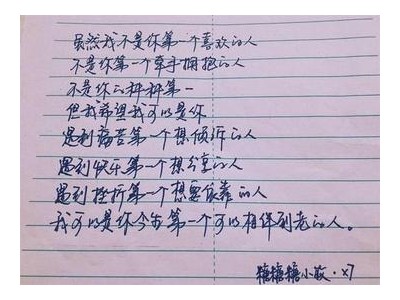 虽然我不是你第一个喜欢的人
不是你第一个牵手拥抱的人
不是你的种种第一
但我希望我可以是你
遇到痛苦第一个想倾诉的人
遇到快乐第一个想分享的人
遇到挫折第一个想要依靠的人
我可以是你今生第一个可以相伴到老的人。
糖糖糖小敏·x7